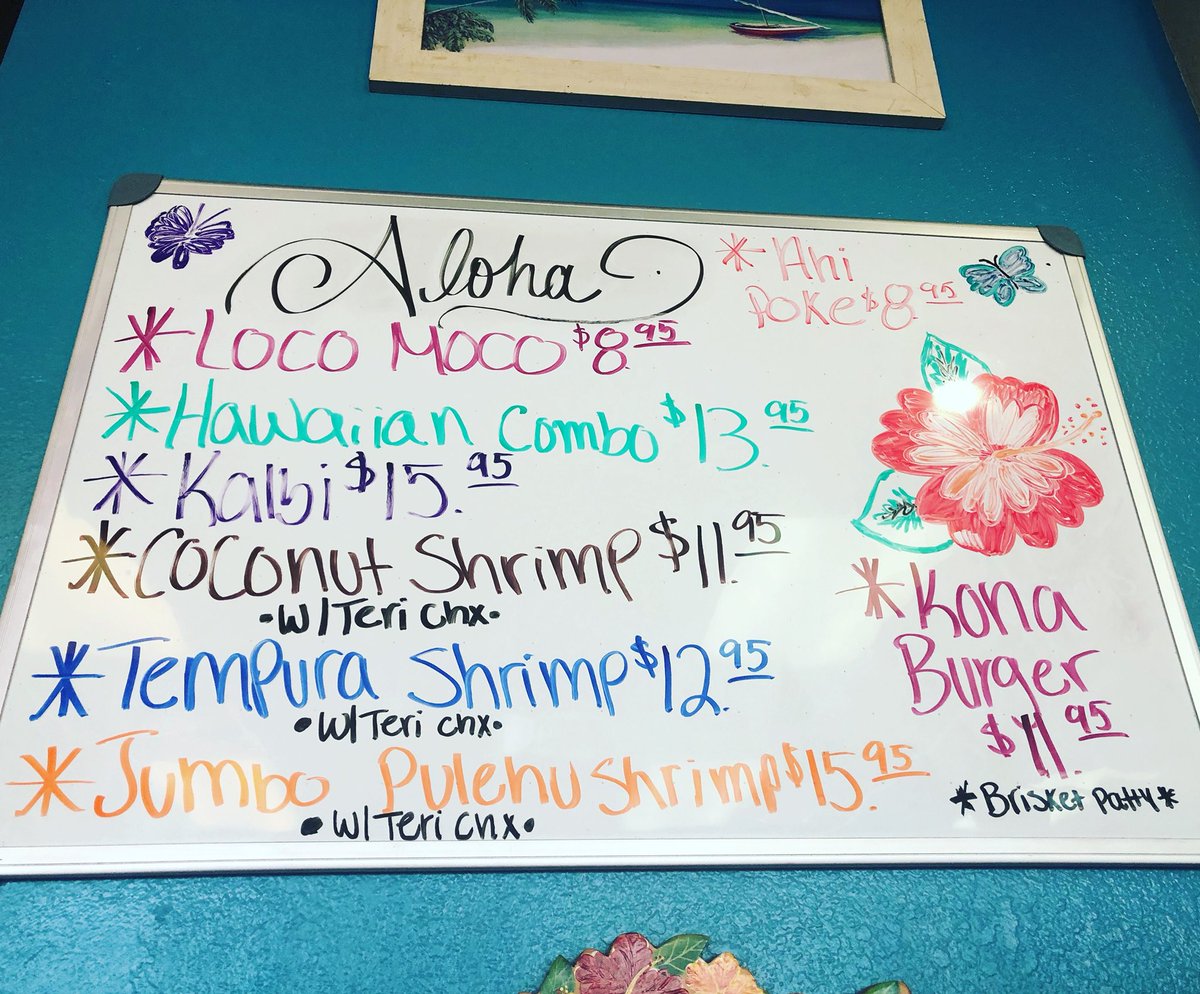 Aloha
* Loco Moco $8.95
* Hawaiian Combo $13.95
* Kalbi $15.95
* Coconut Shrimp $11.95
• w/Teri chx •
* Tempura Shrimp $12.95
• w/Teri chx •
* Jumbo Pulehu Shrimp $15.95
• w/Teri chx •
* Ahi
Poke $8.95
* Kona
Burger
$11.95
* Brisket Patty *